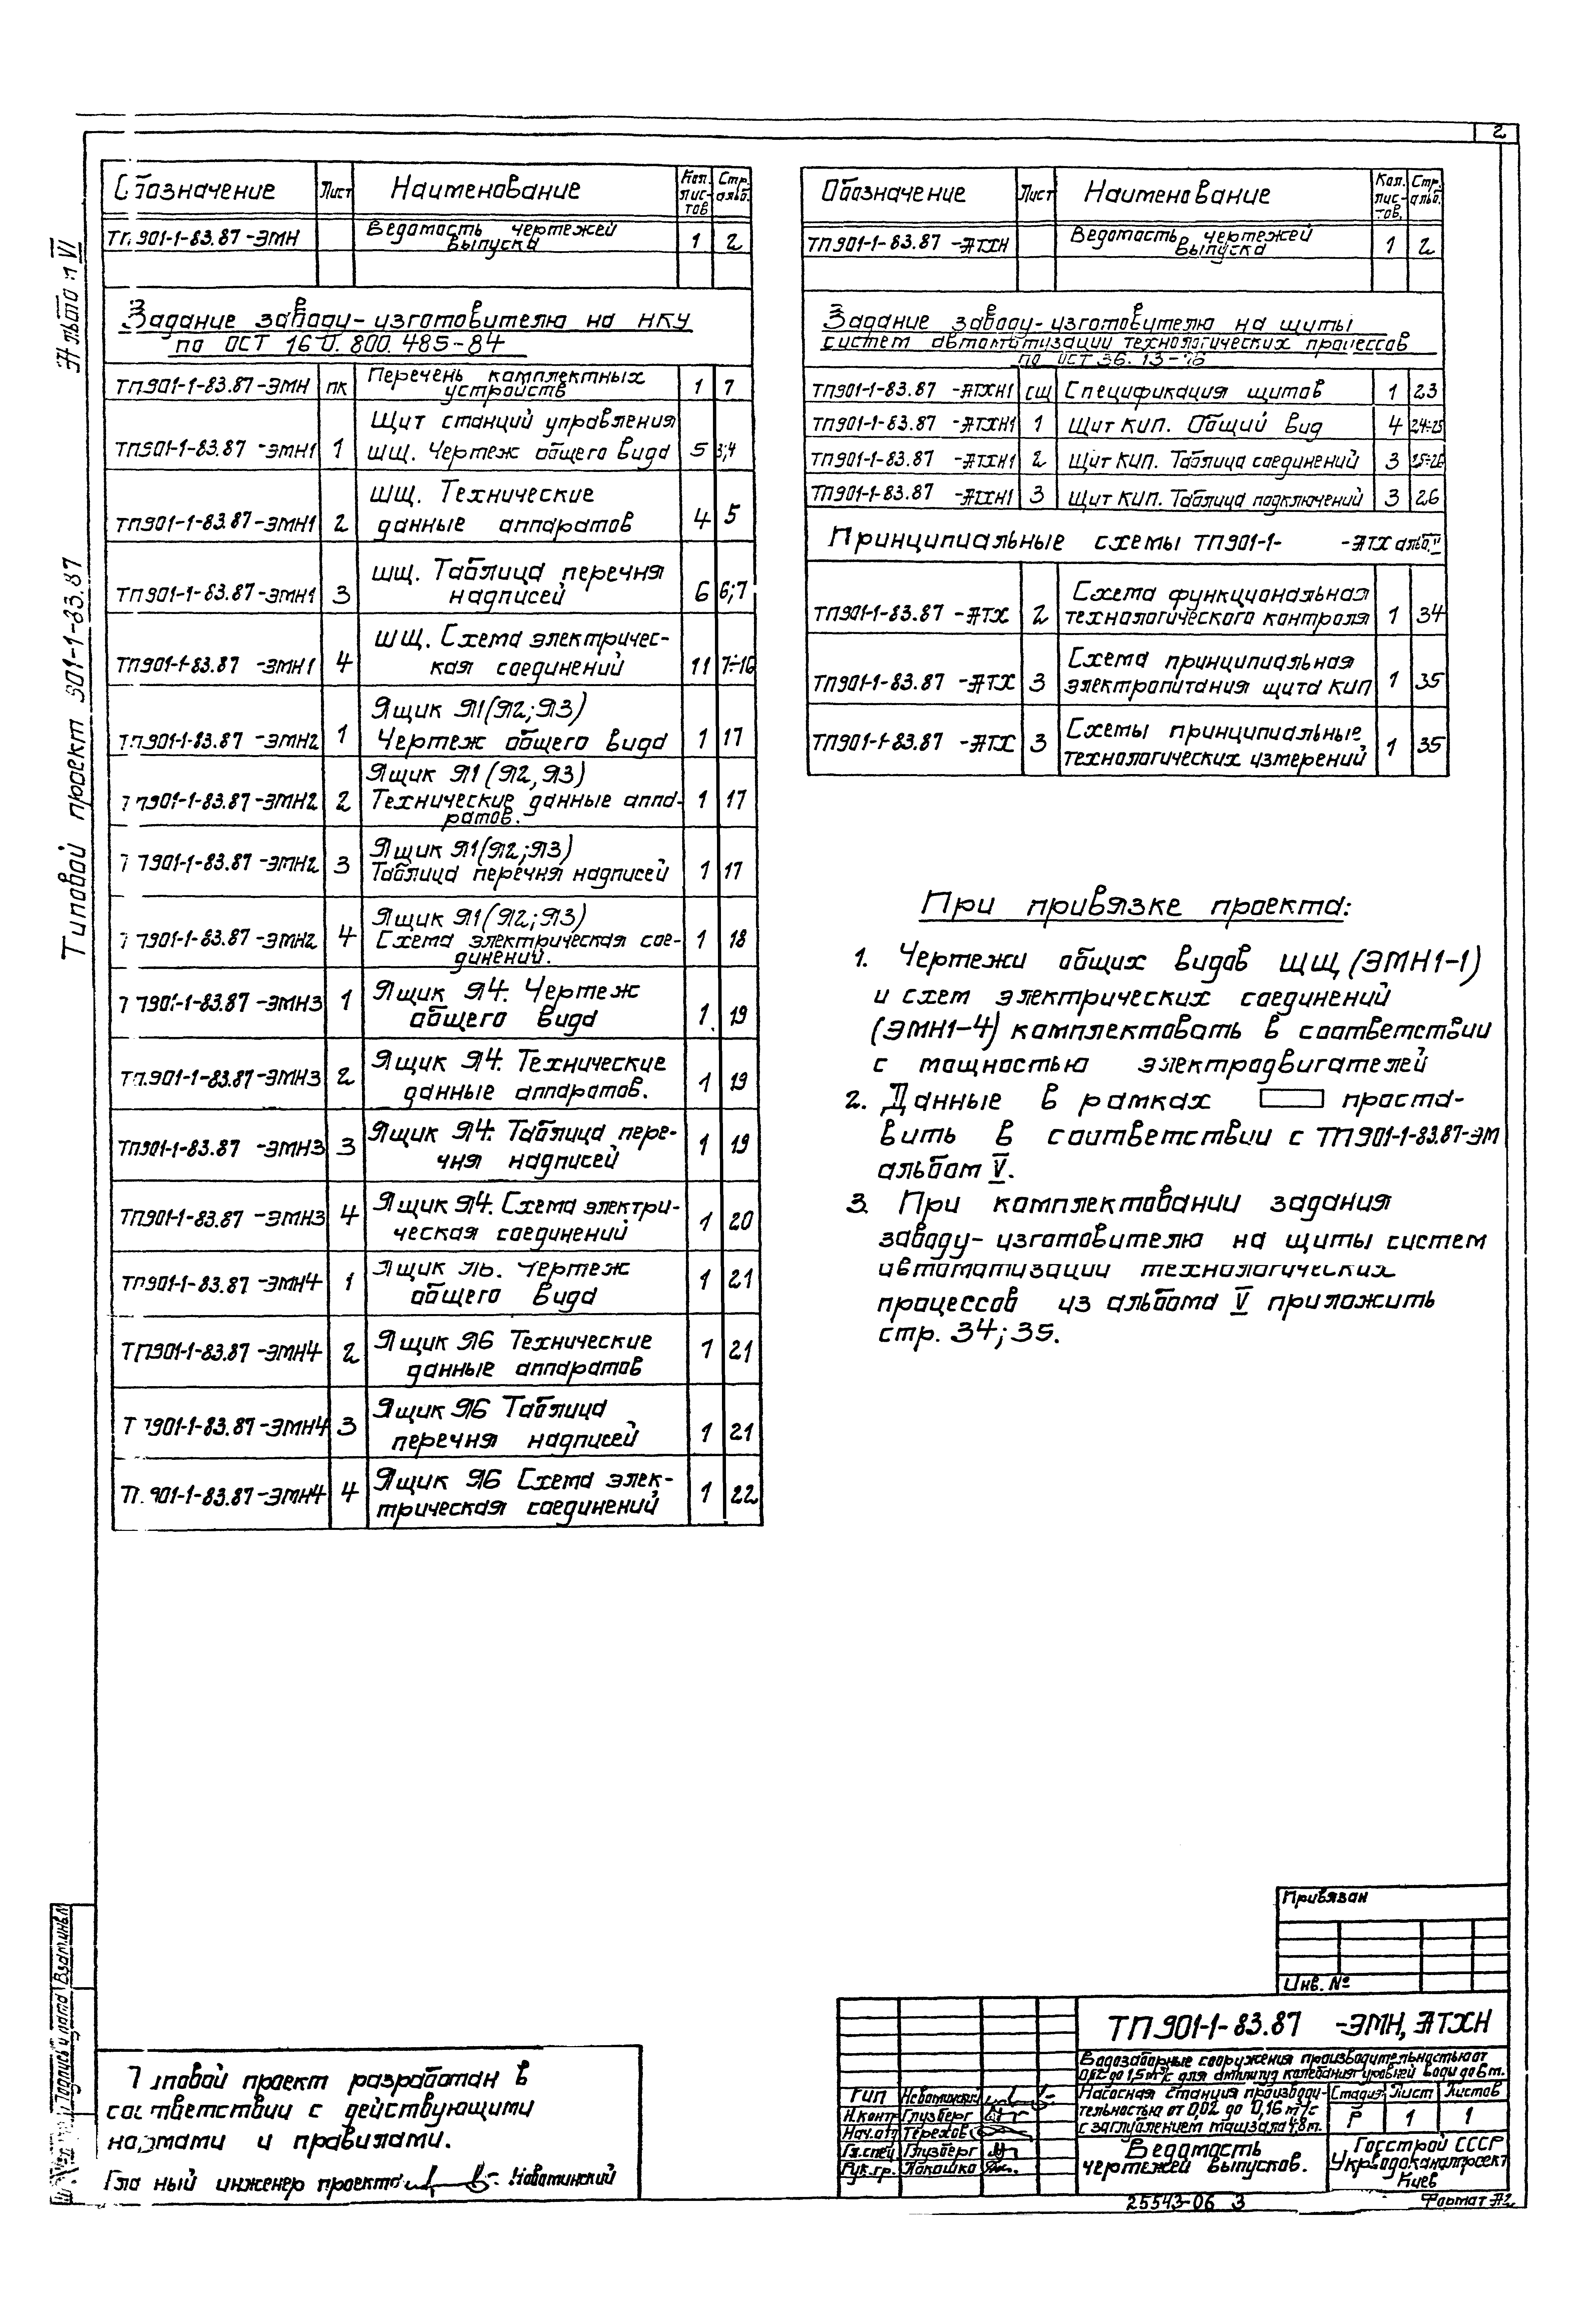 2
Альбом VI
Типовой проект 901-1-83.87
Обозначение Лист Наименование Кол. лис-тов Стр. альб.
ТП.901-1-83.87 -ЭМН Ведомость чертежей выпуска 1 2
Задание заводу-изготовителю на НКУ
по ОСТ 16 0. 800. 485-84
ТП901-1-83.87-ЭМН ПК Перечень комплектных устройств 1 7
Щит станций управления
ТП901-1-83.87 -ЭМН1 1 ШЩ. Чертеж общего вида 5 3;4
ШЩ. Технические
ТП901-1-83.87-ЭМН1 2 данные аппаратов 4 5
ШЩ. Таблица перечня
ТП901-1-83.87-ЭМН1 3 надписей 6 6;7
ШЩ. Схема электричес-
ТП901-1-83.87 -ЭМН1 4 кая соединений 11 7÷16
Ящик Я1(Я2;Я3)
ТП901-1-83.87 -ЭМН2 1 Чертеж общего вида 1 17
Ящик Я1 (Я2, Я3)
ТП901-1-83.87-ЭМН2 2 Технические данные аппа- 1 17
ратов.
Ящик Я1(Я2;Я3)
ТП901-1-83.87 -ЭМН2 3 Таблица перечня надписей 1 17
Ящик Я1(Я2;Я3)
ТП901-1-83.87 -ЭМН2 4 Схема электрическая сое- 1 18
динений.
ТП901-1-83.87 -ЭМН3 1 Ящик Я4. Чертеж
общего вида 1 19
Ящик Я4. Технические
ТП.901-1-83.87-ЭМН3 2 данные аппаратов. 1 19
Ящик Я4. Таблица пере-
ТП901-1-83.87 -ЭМН3 3 чня надписей 1 19
Ящик Я4. Схема электри-
ТП901-1-83.87 -ЭМН3 4 ческая соединений 1 20
Ящик Я6. Чертеж
ТП901-1-83.87 -ЭМН4 1 общего вида 1 21
Ящик Я6 Технические
ТП901-1-83.87-ЭМН4 2 данные аппаратов 1 21
Ящик Я6 Таблица
ТП901-1-83.87 -ЭМН4 3 перечня надписей 1 21
Ящик Я6 Схема элек-
ТП.901-1-83.87-ЭМН4 4 трическая соединений 1 22
Обозначение Лист Наименование Кол. лис-тов, Стр. альб.
ТП901-1-83.87 -АТХН Ведомость чертежей выпуска 1 2
Задание заводу-изготовителю на щиты
систем автоматизации технологических процессов
по ОСТ 36. 13-76
ТП901-1-83.87 -АТХН1 СЩ Спецификация щитов 1 23
ТП901-1-83.87 -АТХН1 1 Щит КИП. Общий вид 4 24÷25
ТП901-1-83.87 -АТХН1 2 Щит КИП. Таблица соединений 3 25÷26
ТП901-1-83.87 -АТХН1 3 Щит КИП. Таблица подключений 3 26
Принципиальные схемы ТП901-1- -АТХ альб.
Схема функциональная
ТП901-1-83.87 -АТХ 2 технологического контроля 1 34
Схема принципиальная
ТП901-1-83.87 -АТХ 3 электропитания щита КИП 1 35
Схемы принципиальные
ТП901-1-83.87 -АТХ 3 технологических измерений 1 35
При привязке проекта:
1. Чертежи общих видов ШЩ (ЭМН1-1)
и схем электрических соединений
(ЭМН1-4) комплектовать в соответствии
с мощностью электродвигателей
2. Данные в рамках проста-
вить в соответствии с ТП901-1-83.87-ЭМ
альбом V.
3. При комплектовании задания
заводу-изготовителю на щиты систем
автоматизации технологических
процессов из альбома V приложить
стр. 34; 35.
Привязан
Инв. №
ТП.901-1-83.87 -ЭМН, АТХН
Водозаборные сооружения производительностью от
0,02 до 1,5м³/с для амплитуд колебания уровней воды до 6м.
Насосная станция производи-
тельностью от 0,02 до 0,16 м³/с
с заглублением машзала 4,8м.
Стадия Лист Листов
Р 1 1
Ведомость
чертежей выпусков.
Госстрой СССР
Укрводоканалпроект
Киев
ГИП Новотинский
Н.контр Глузберг
Нач.отд Терехов
Гл.спец Глузберг
Рук.гр. Покошко
25543-06 3
Формат А2
Типовой проект разработан в
соответствии с действующими
нормами и правилами.
Главный инженер проекта Новотинский
Подпись и дата Взам.инв.№